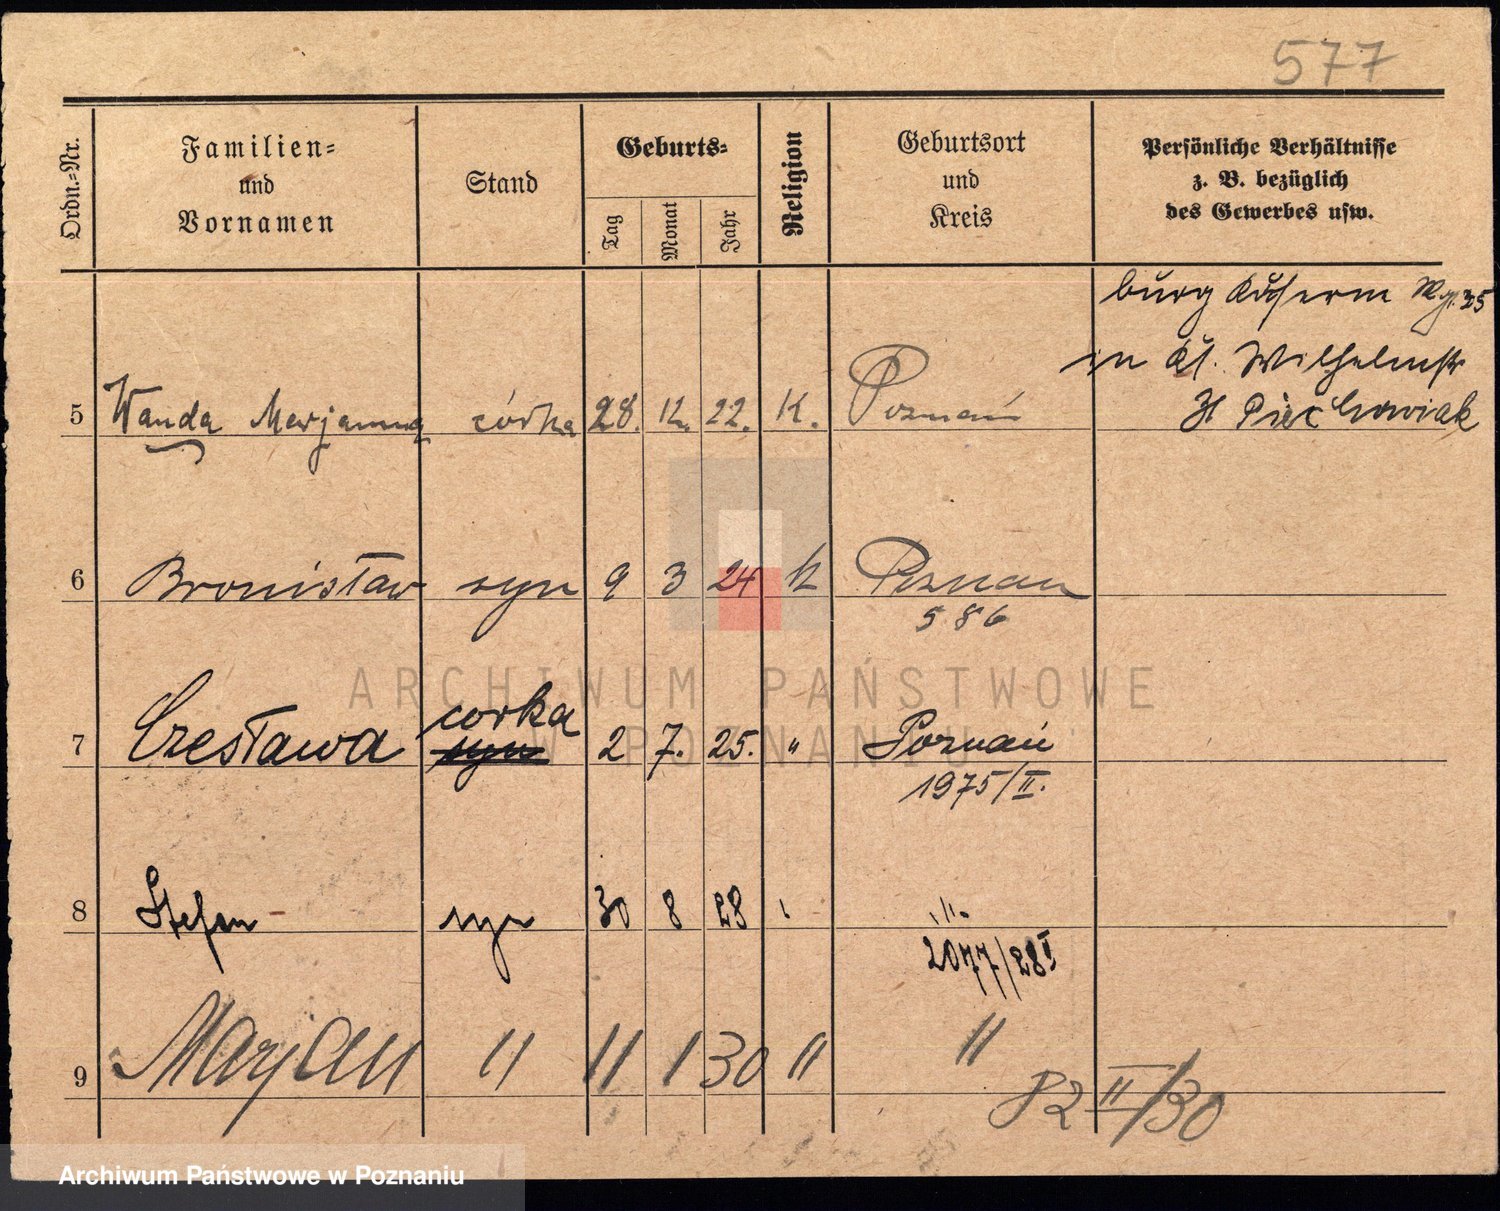 577
Ordn.-Nr.
Familien-
und
Vornamen
Stand
Geburts-
Tag
Monat
Jahr
Religion
Geburtsort
und
Kreis
Persönliche Verhältnisse
z. B. bezüglich
des Gewerbes usw.
burg
in Kl. Wilhelmstr
5 Wanda Marjanna córka 28. 12. 22. K. Poznań
6 Bronisław syn 9 3 24 k Poznan
586
corka
7 Czesława syn 2 7. 25. " Poznań
1975/II.
8 Stefan syn 30 8 28 "
2077/28 I
9 Marjan " 11 1 30 " "
82 II/30
ARCHIWUM PAŃSTWOWE
W POZNANIU
Archiwum Państwowe w Poznaniu